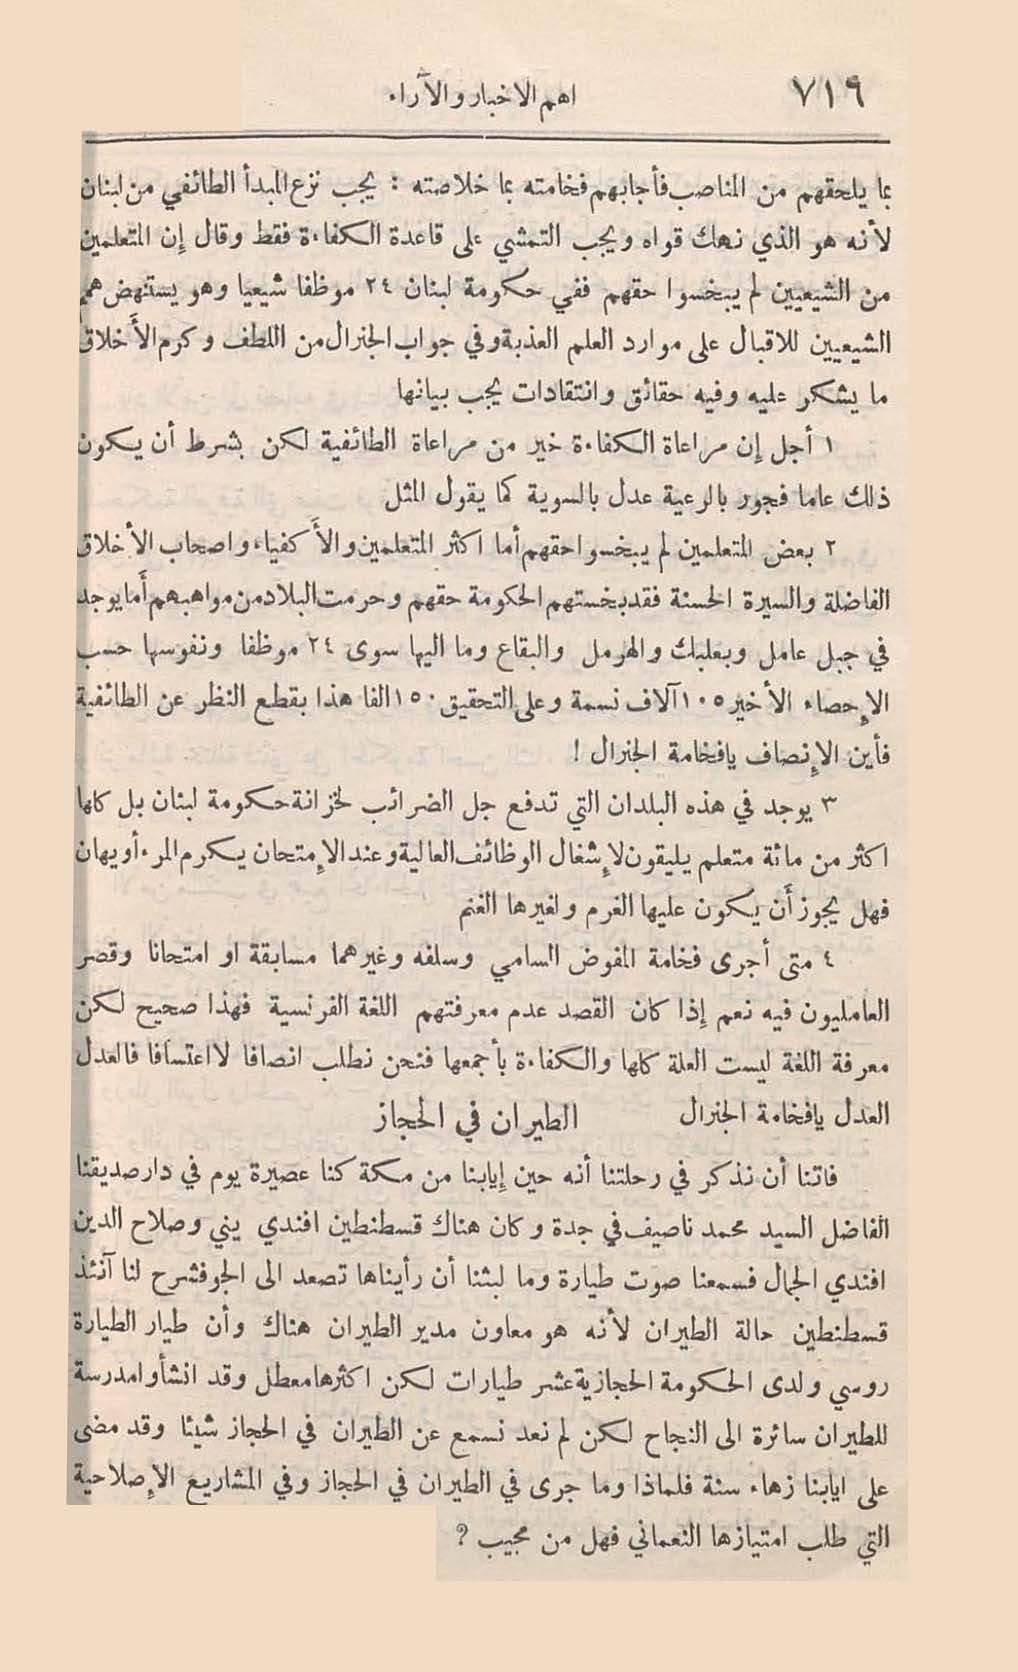 ٧١٩
اهم الاخبار والآراء
بما يلحقهم من المناصب فأجابهم فخامته بما خلاصته : يجب نزع المبدأ الطائفي من لبنان
لأنه هو الذي نهك قواه ويجب التمشي على قاعدة الكفاءة فقط وقال إن المتعلمين
من الشيعيين لم يبخسوا حقهم ففي حكومة لبنان ٢٤ موظفا شيعيا وهو يستنهض همم
الشيعيين للاقبال على موارد العلم العذبة وفي جواب الجنرال من اللطف وكرم الأَخلاق
ما يشكر عليه وفيه حقائق وانتقادات يجب بيانها
١ أجل إن مراعاة الكفاءة خير من مراعاة الطائفية لكن بشرط أن يكون
ذلك عاما فجور بالرعية عدل بالسوية كما يقول المثل
٢ بعض المتعلمين لم يبخسوا حقهم أما اكثر المتعلمين والأَكفياء واصحاب الأخلاق
الفاضلة والسيرة الحسنة فقد بخستهم الحكومة حقهم وحرمت البلاد من مواهبهم أَما يوجد
في جبل عامل وبعلبك والهرمل والبقاع وما اليها سوى ٢٤ موظفا ونفوسها حسب
الإحصاء الأخير ١٠٥ آلاف نسمة وعلى التحقيق ١٥٠ الفا هذا بقطع النظر عن الطائفية
فأين الإنصاف يافخامة الجنرال !
٣ يوجد في هذه البلدان التي تدفع جل الضرائب لخزانة حكومة لبنان بل كلها
اكثر من مائة متعلم يليقون لإشغال الوظائف العالية وعند الإمتحان يكرم المرء أو يهان
فهل يجوز أَن يكون عليها الغرم ولغيرها الغنم
٤ متى أجرى فخامة المفوض السامي وسلفه وغيرهما مسابقة او امتحانا وقصر
العامليون فيه نعم إذا كان القصد عدم معرفتهم اللغة الفرنسية فهذا صحيح لكن
معرفة اللغة ليست العلة كلها والكفاءة بأجمعها فنحن نطلب انصافا لا اعتسافا فالعدل
العدل يافخامة الجنرال
الطيران في الحجاز
فاتنا أن نذكر في رحلتنا أنه حين إيابنا من مكة كنا عصيرة يوم في دار صديقنا
الفاضل السيد محمد ناصيف في جدة وكان هناك قسطنطين افندي يني وصلاح الدين
افندي الجمال فسمعنا صوت طيارة وما لبثنا أن رأيناها تصعد الى الجو فشرح لنا آنئذ
قسطنطين حالة الطيران لأنه هو معاون مدير الطيران هناك وأن طيار الطيارة
روسي ولدى الحكومة الحجازية عشر طيارات لكن اكثرها معطل وقد انشأوا مدرسة
للطيران سائرة الى النجاح لكن لم نعد نسمع عن الطيران في الحجاز شيئا وقد مضى
على ايابنا زهاء سنة فلماذا وما جرى في الطيران في الحجاز وفي المشاريع الإصلاحية
التي طلب امتيازها النعماني فهل من مجيب ؟